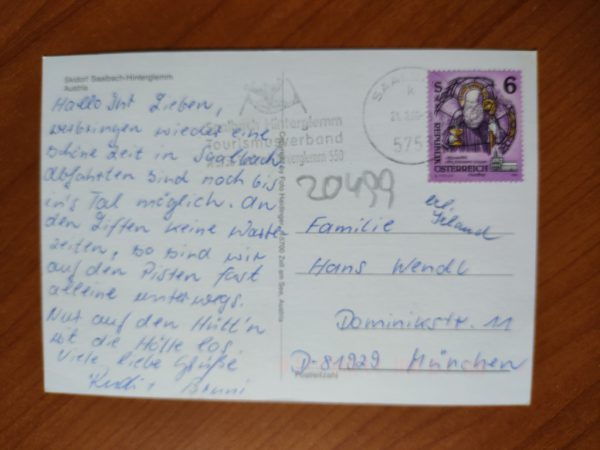 Skidorf Saalbach-Hinterglemm
Austria
Hallo Ihr Lieben,
verbringen wieder eine
schöne Zeit in Saalbach
Abfahrten sind noch bis
in's Tal möglich. An
den Liften keine Warte-
zeiten, so sind wir
auf den Pisten fast
alleine unterwegs.
Nur auf den Hütt'n
ist die Hölle los.
Viele liebe Grüße
Rudi + Bruni
Saalbach Hinterglemm
Tourismusverband
5753
S 6
REPUBLIK
ÖSTERREICH
20499
Familie
Hans Wendl
Dominikstr. 11
D-81929 München
Postleitzahl